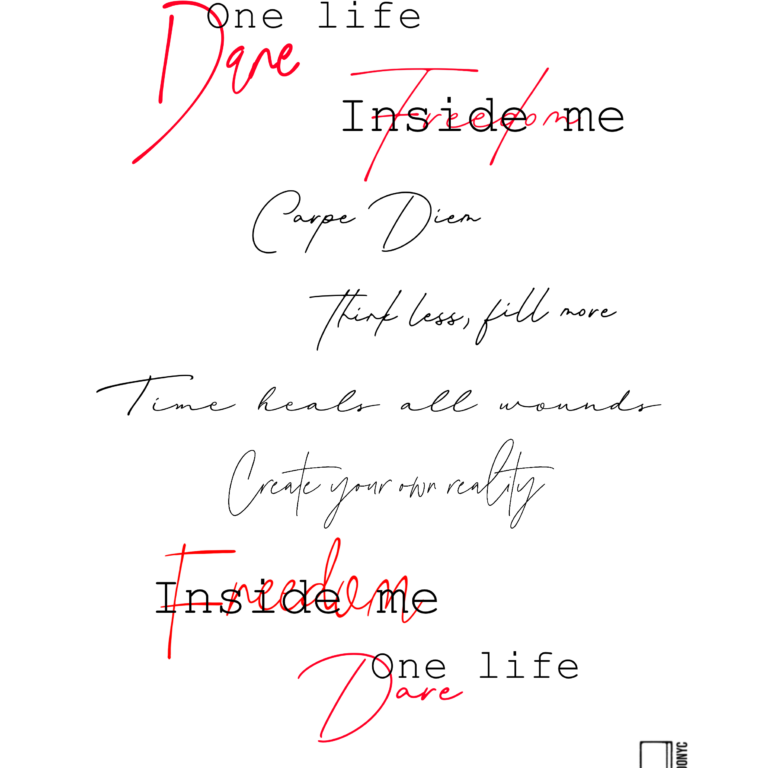 One life
Dare
Freedom
Inside me
Carpe Diem
Think less, fill more
Time heals all wounds
Create your own reality
Freedom
Inside me
One life
Dare